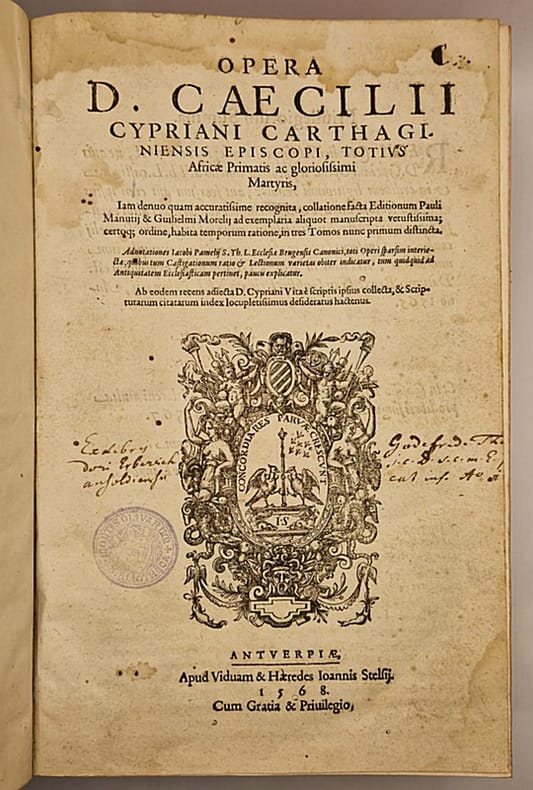 OPERA
D. CAECILII
CYPRIANI CARTHAGI-
NIENSIS EPISCOPI, TOTIVS
Africæ Primatis ac gloriosissimi
Martyris,
Iam denuo quam accuratissime recognita, collatione facta Editionum Pauli
Manutij & Gulielmi Morelij ad exemplaria aliquot manuscripta vetustissima;
certoq; ordine, habita temporum ratione, in tres Tomos nunc primum distincta.
Adnotationes Iacobi Pamelij S. Th. L. Ecclesiæ Brugensis Canonici, toti Operi sparsim interie-
ctæ, quibus tum Castigationum ratio & Lectionum varietas obiter indicatur, tum quidquid ad
Antiquitatem Ecclesiasticam pertinet, paucis explicatur.
Ab eodem recens adiecta D. Cypriani Vita è scriptis ipsius collecta, & Scrip-
turarum citatarum index locupletissimus desideratus hactenus.
CONCORDIA RES PARVAE CRESCVNT
I·S
Godefrid.
ANTVERPIÆ,
Apud Viduam & Hæredes Ioannis Stelsij.
1568.
Cum Gratia & Priuilegio,